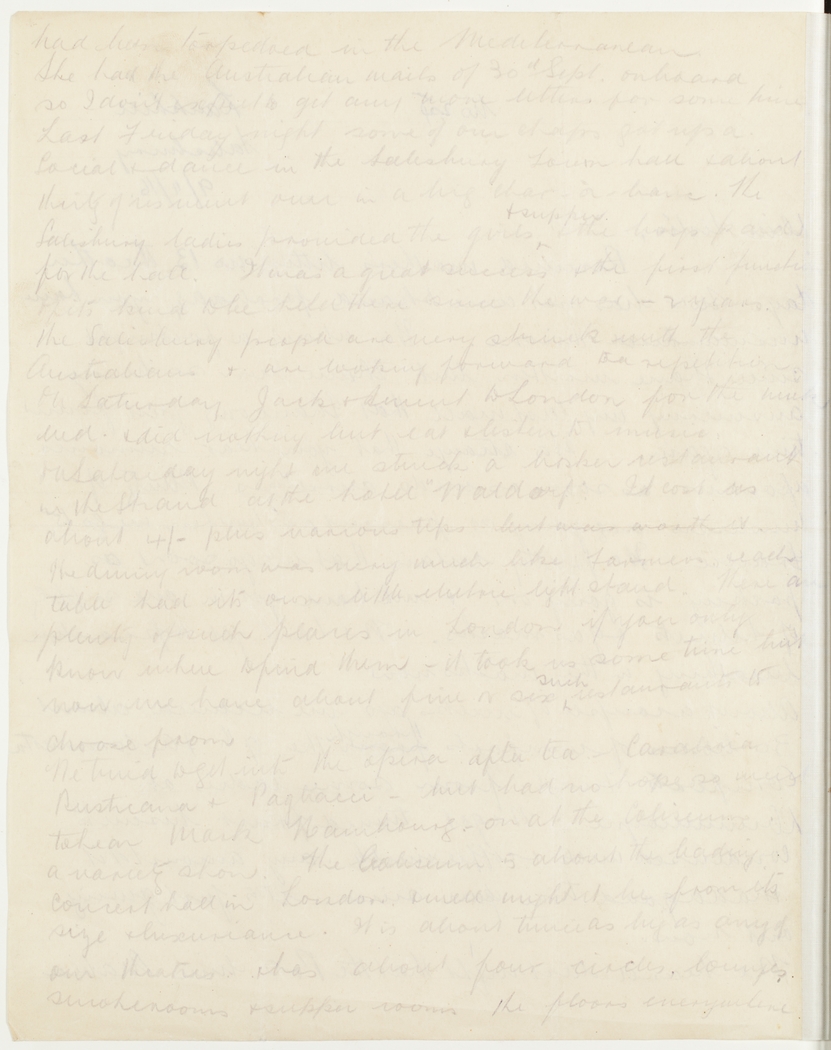 had been torpedoed in the Mediterranean
She had the Australian mails of 30th Sept. onboard
so I don't expect to get any more letters for some time
Last Friday night some of our chaps got up a
Social & dance in the Salisbury Town hall & about
thirty of us went over in a big char-a-banc. The
+ supper
Salisbury ladies provided the girls & the boys paid
for the hall. It was a great success & the first
of its kind to be held there since the war – 2 years.
The Salisbury people are very struck with the
Australians & are looking forward to a repetition.
On Saturday Jack & I went to London for the
& did nothing but eat & listen to music.
On Saturday night we struck a bosker restaurant
in the Strand at the hotel "Waldorf". It cost us
about 4/- plus various tips but was worth it.
The dining room was very much like Farmers, each
table had its own little electric light stand. There are
plenty of such places in London if you only
know where to find them – it took us some time but
such
now we have about five or six restaurants to
choose from
We tried to get into the opera after tea – Cavalleria
Rusticana & Pagliacci – but had no hope so went
to hear Mark Hambourg on at the Coliseum
a variety show. The Coliseum is about the leading
concert hall in London & well might it be from its
size & luxuriance. It is about twice as big as any of
our theatres & has about four circles, lounges,
smokerooms & supper rooms the floors everywhere